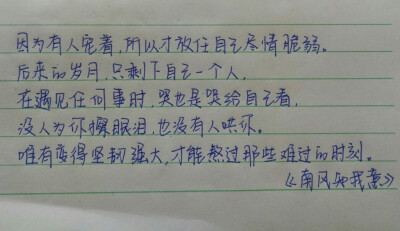 因为有人宠着,所以才放任自己尽情脆弱。
后来的岁月,只剩下自己一个人,
在遇见任何事时,哭也是哭给自己看,
没人为你擦眼泪,也没有人哄你。
唯有变得坚韧强大,才能熬过那些难过的时刻。
《南风知我意》